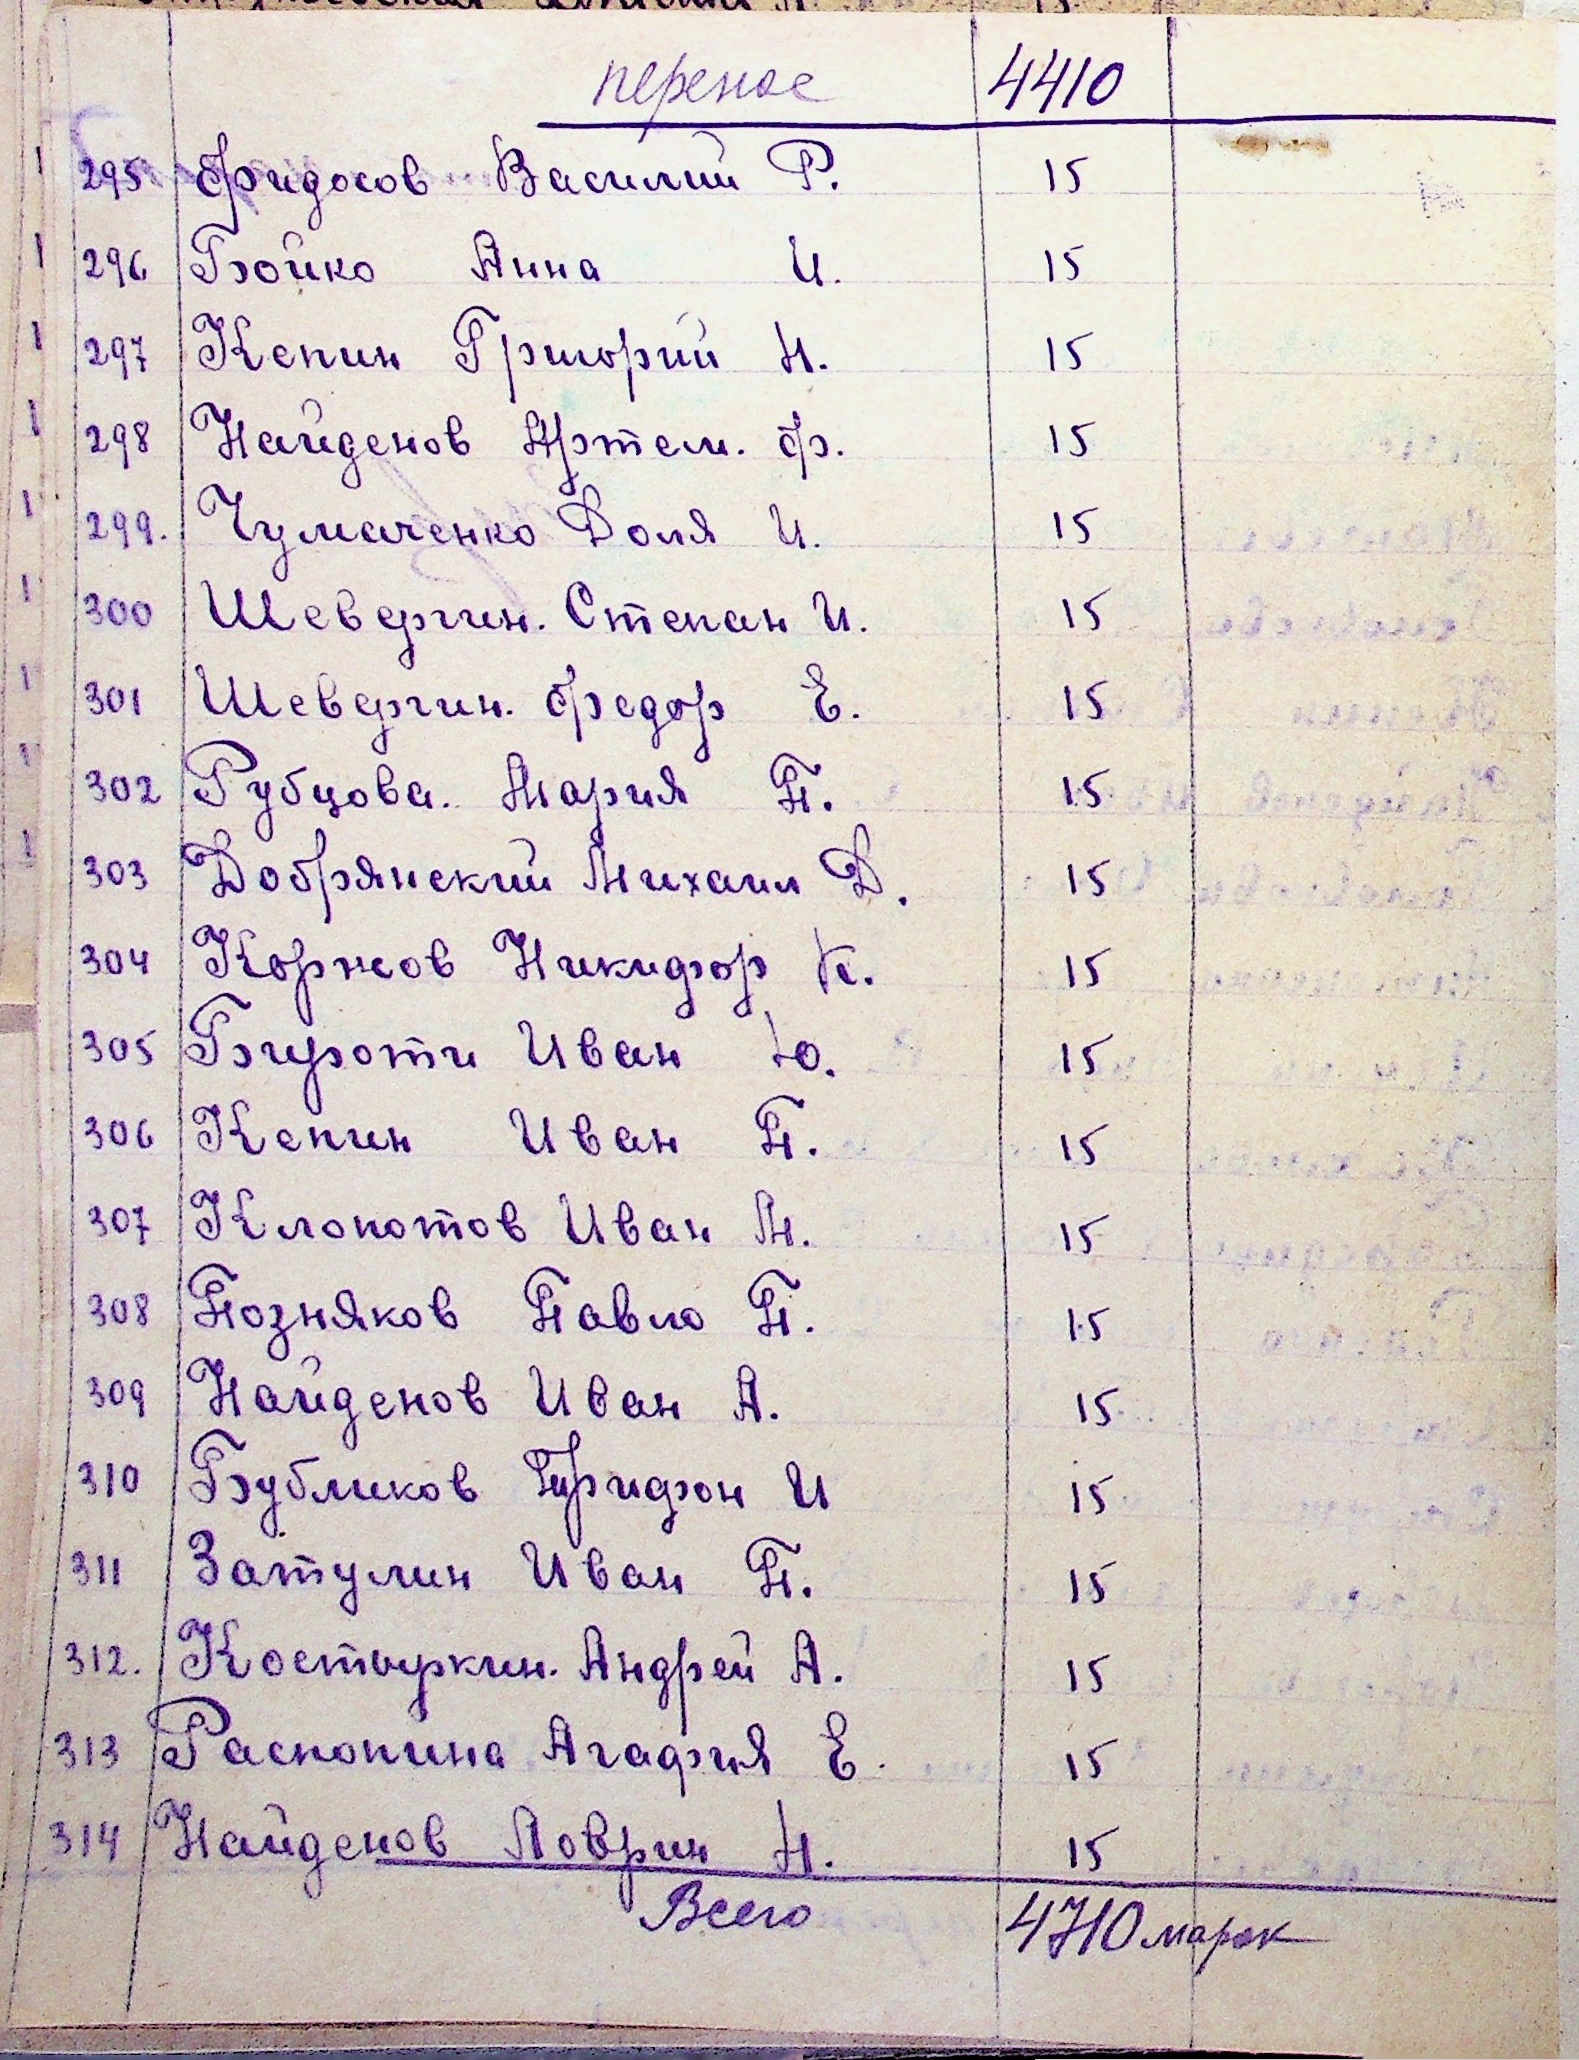 перенос 4410
295 Фидосов Василий Р. 15
296 Бойко Анна И. 15
297 Кепин Григорий Н. 15
298 Найденов Артем. Ф. 15
299. Чумаченко Доля И. 15
300 Шевергин. Степан И. 15
301 Шевергин. Федор Е. 15
302 Рубцова. Мария П. 15
303 Добрянский Михаил Д. 15
304 Коржов Никифор К. 15
305 Иван Ю. 15
306 Кепин Иван П. 15
307 Клопотов Иван М. 15
308 Позняков Павло П. 15
309 Найденов Иван А. 15
310 Бубликов И 15
311 Затулин Иван П. 15
312. Костыркин. Андрей А. 15
313 Распопина Агафия Е. 15
314 НайденовЛоврин Н. 15
Всего 4710 марок